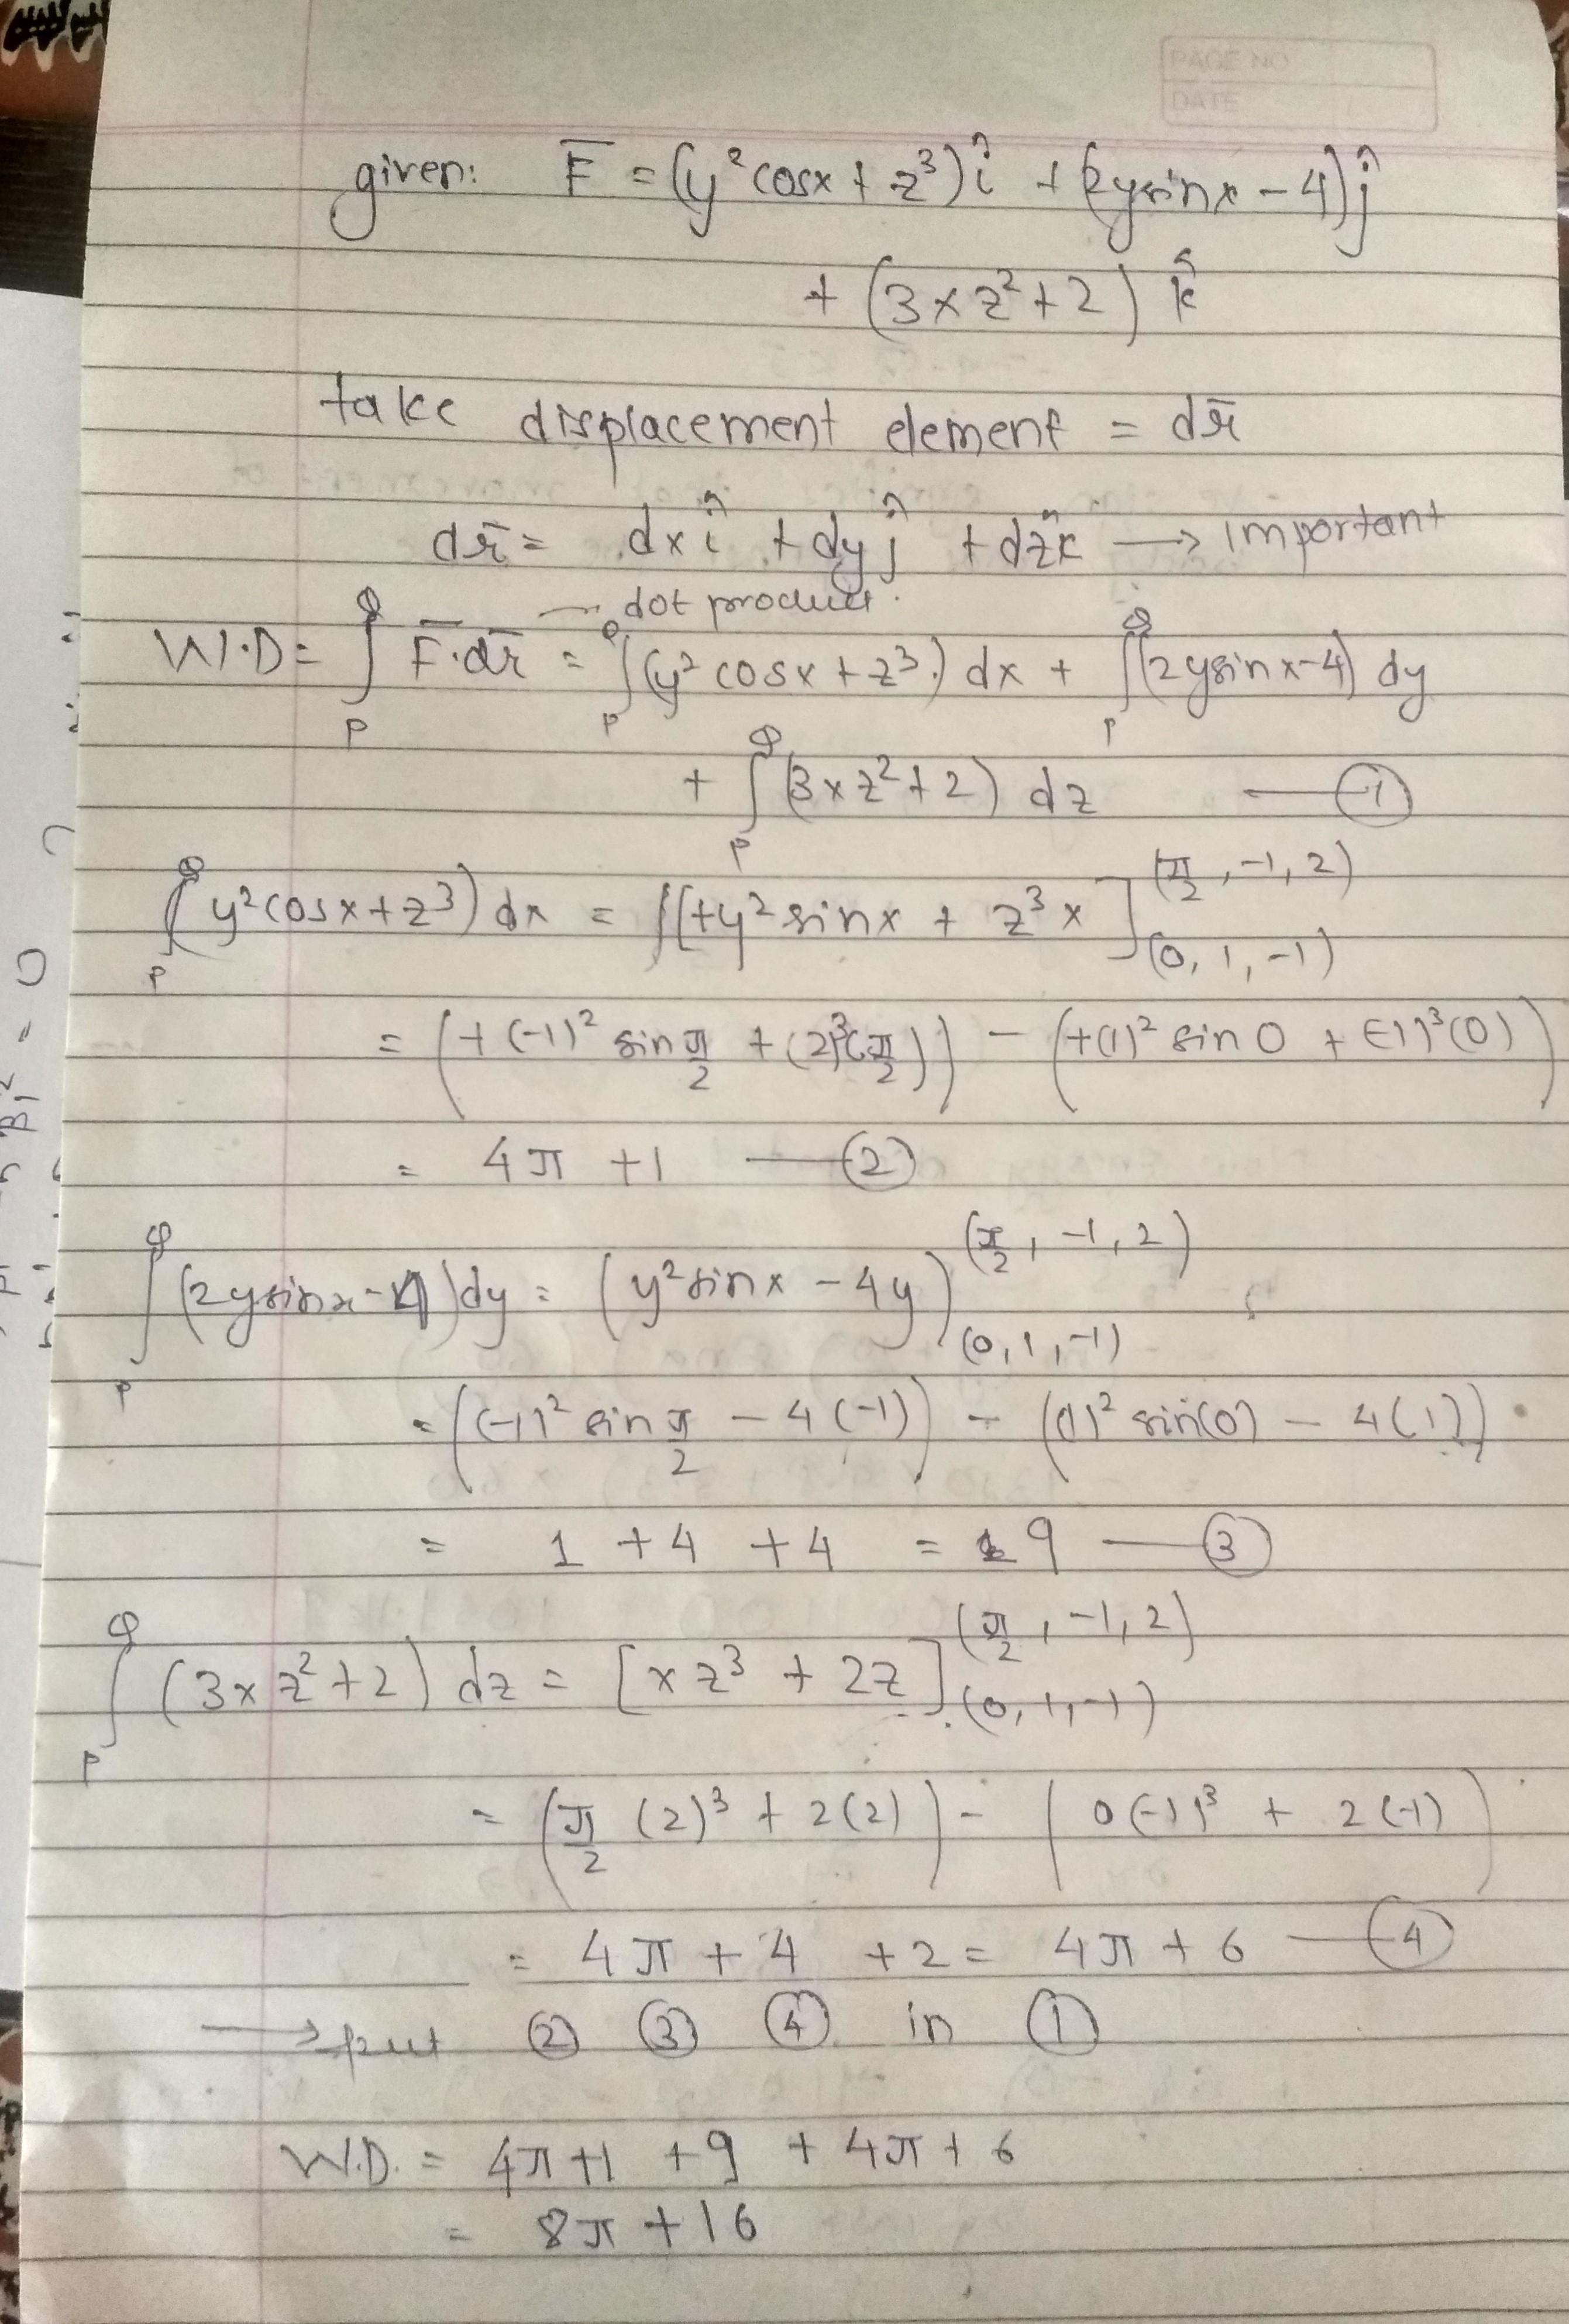 PAGE NO
DATE
given: F̅ = (y² cosx + z³) î + (2ysinx - 4) ĵ
+ (3xz² + 2) k̂
take displacement element = dr̄
dr̄ = dx î + dy ĵ + dz k̂ → Important
→ dot product.
W.D = ∫_P^Q F̅·dr̄ = ∫_P^Q (y² cosx + z³) dx + ∫_P^Q (2ysinx-4) dy
+ ∫_P^Q (3xz² + 2) dz — ①
∫_P^Q (y² cosx + z³) dx = ∫[+y² sinx + z³x]_(0, 1, -1)^(π/2, -1, 2)
= (+(-1)² sin π/2 + (2)³(π/2)) - (+(1)² sin 0 + (-1)³(0))
= 4π + 1 — ②
∫_P^Q (2ysinx-4) dy = (y² sinx - 4y)_(0, 1, -1)^(π/2, -1, 2)
= ((-1)² sin π/2 - 4(-1)) - ((1)² sin(0) - 4(1))
= 1 + 4 + 4 = 9 — ③
∫_P^Q (3xz² + 2) dz = [xz³ + 2z]_(0, 1, -1)^(π/2, -1, 2)
= (π/2 (2)³ + 2(2)) - (0(-1)³ + 2(-1))
= 4π + 4 + 2 = 4π + 6 — ④
→ put ② ③ ④ in ①
W.D. = 4π+1 + 9 + 4π + 6
= 8π + 16